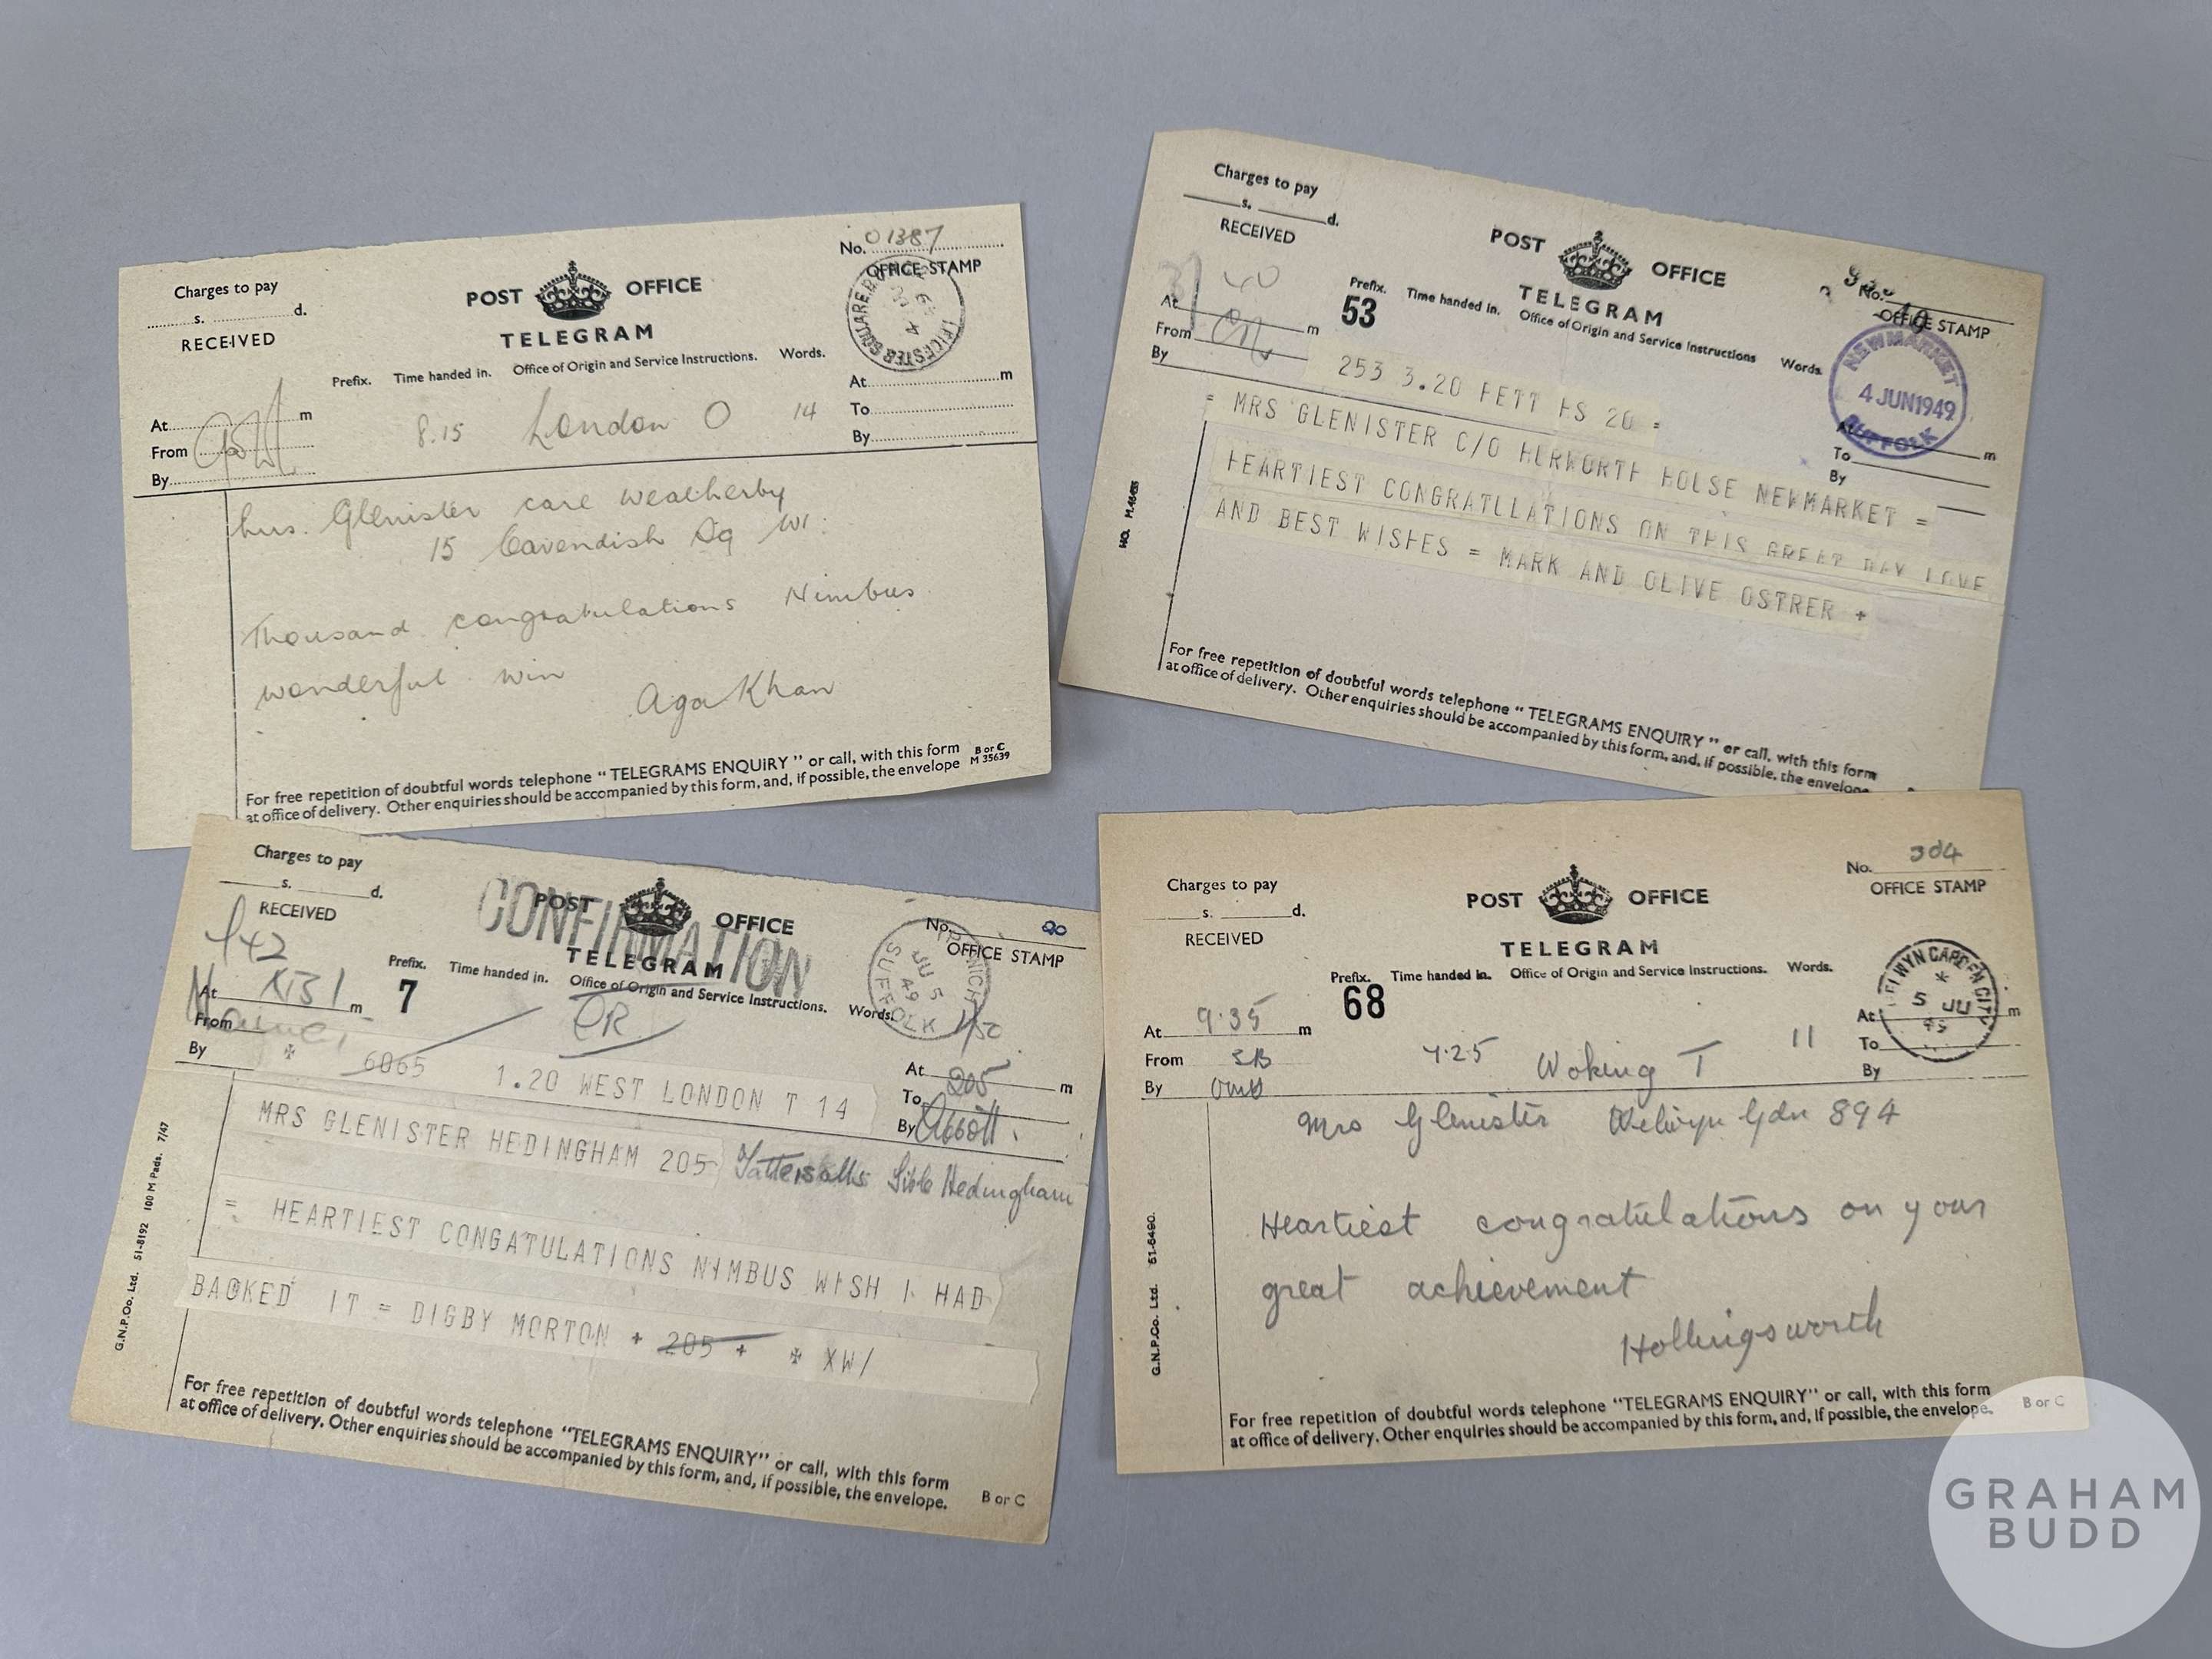 Charges to pay
s. d.
RECEIVED
At m
From
By
POST OFFICE
TELEGRAM
Prefix. Time handed in. Office of Origin and Service Instructions. Words.
No. 01387
OFFICE STAMP
LEICESTER SQUARE
At m
To
By
8.15 London O 14
Mrs. Glenister care Weatherby
15 Cavendish Sq W1.
Thousand congratulations Nimbus
wonderful win
Aga Khan
For free repetition of doubtful words telephone "TELEGRAMS ENQUIRY" or call, with this form
at office of delivery. Other enquiries should be accompanied by this form, and, if possible, the envelope
B or C
M 35639
Charges to pay
s. d.
RECEIVED
At m
From
By
POST OFFICE
TELEGRAM
Prefix. Time handed in. Office of Origin and Service Instructions Words.
53
No.
OFFICE STAMP
NEWMARKET
4 JUN 1949
SUFFOLK
At m
To
By
253 3.20 PETT HS 20 =
= MRS GLENISTER C/O HURWORTH HOUSE NEWMARKET =
HEARTIEST CONGRATULLATIONS ON THIS GREAT DAY LOVE
AND BEST WISHES = MARK AND OLIVE OSTRER +
For free repetition of doubtful words telephone "TELEGRAMS ENQUIRY" or call, with this form
at office of delivery. Other enquiries should be accompanied by this form, and, if possible, the envelope
Charges to pay
s. d.
RECEIVED
At m
From
By
CONFIRMATION
POST OFFICE
TELEGRAM
Prefix. Time handed in. Office of Origin and Service Instructions. Words.
7
No. 20
OFFICE STAMP
JU 5
49
SUFFOLK
At 205 m
To
By Abbott.
6065 1.20 WEST LONDON T 14
MRS GLENISTER HEDINGHAM 205 Tattersalls Sible Hedingham
= HEARTIEST CONGATULATIONS NIMBUS WISH I HAD
BACKED IT = DIGBY MORTON + 205 + + XW/
G.N.P.Co. Ltd. 51-8192 100 M Pads. 7/47
For free repetition of doubtful words telephone "TELEGRAMS ENQUIRY" or call, with this form
at office of delivery. Other enquiries should be accompanied by this form, and, if possible, the envelope.
B or C
Charges to pay
s. d.
RECEIVED
At 9.35 m
From SB
By
POST OFFICE
TELEGRAM
Prefix. Time handed in. Office of Origin and Service Instructions. Words.
68
No. 304
OFFICE STAMP
WELWYN GARDEN CITY
5 JU
At m
To
By
7.25 Woking T 11
Mrs Glenister Welwyn Gdn 894
Heartiest congratulations on your
great achievement
Hollingsworth
G.N.P.Co. Ltd. 51-6490.
For free repetition of doubtful words telephone "TELEGRAMS ENQUIRY" or call, with this form
at office of delivery. Other enquiries should be accompanied by this form, and, if possible, the envelope.
B or C
GRAHAM
BUDD